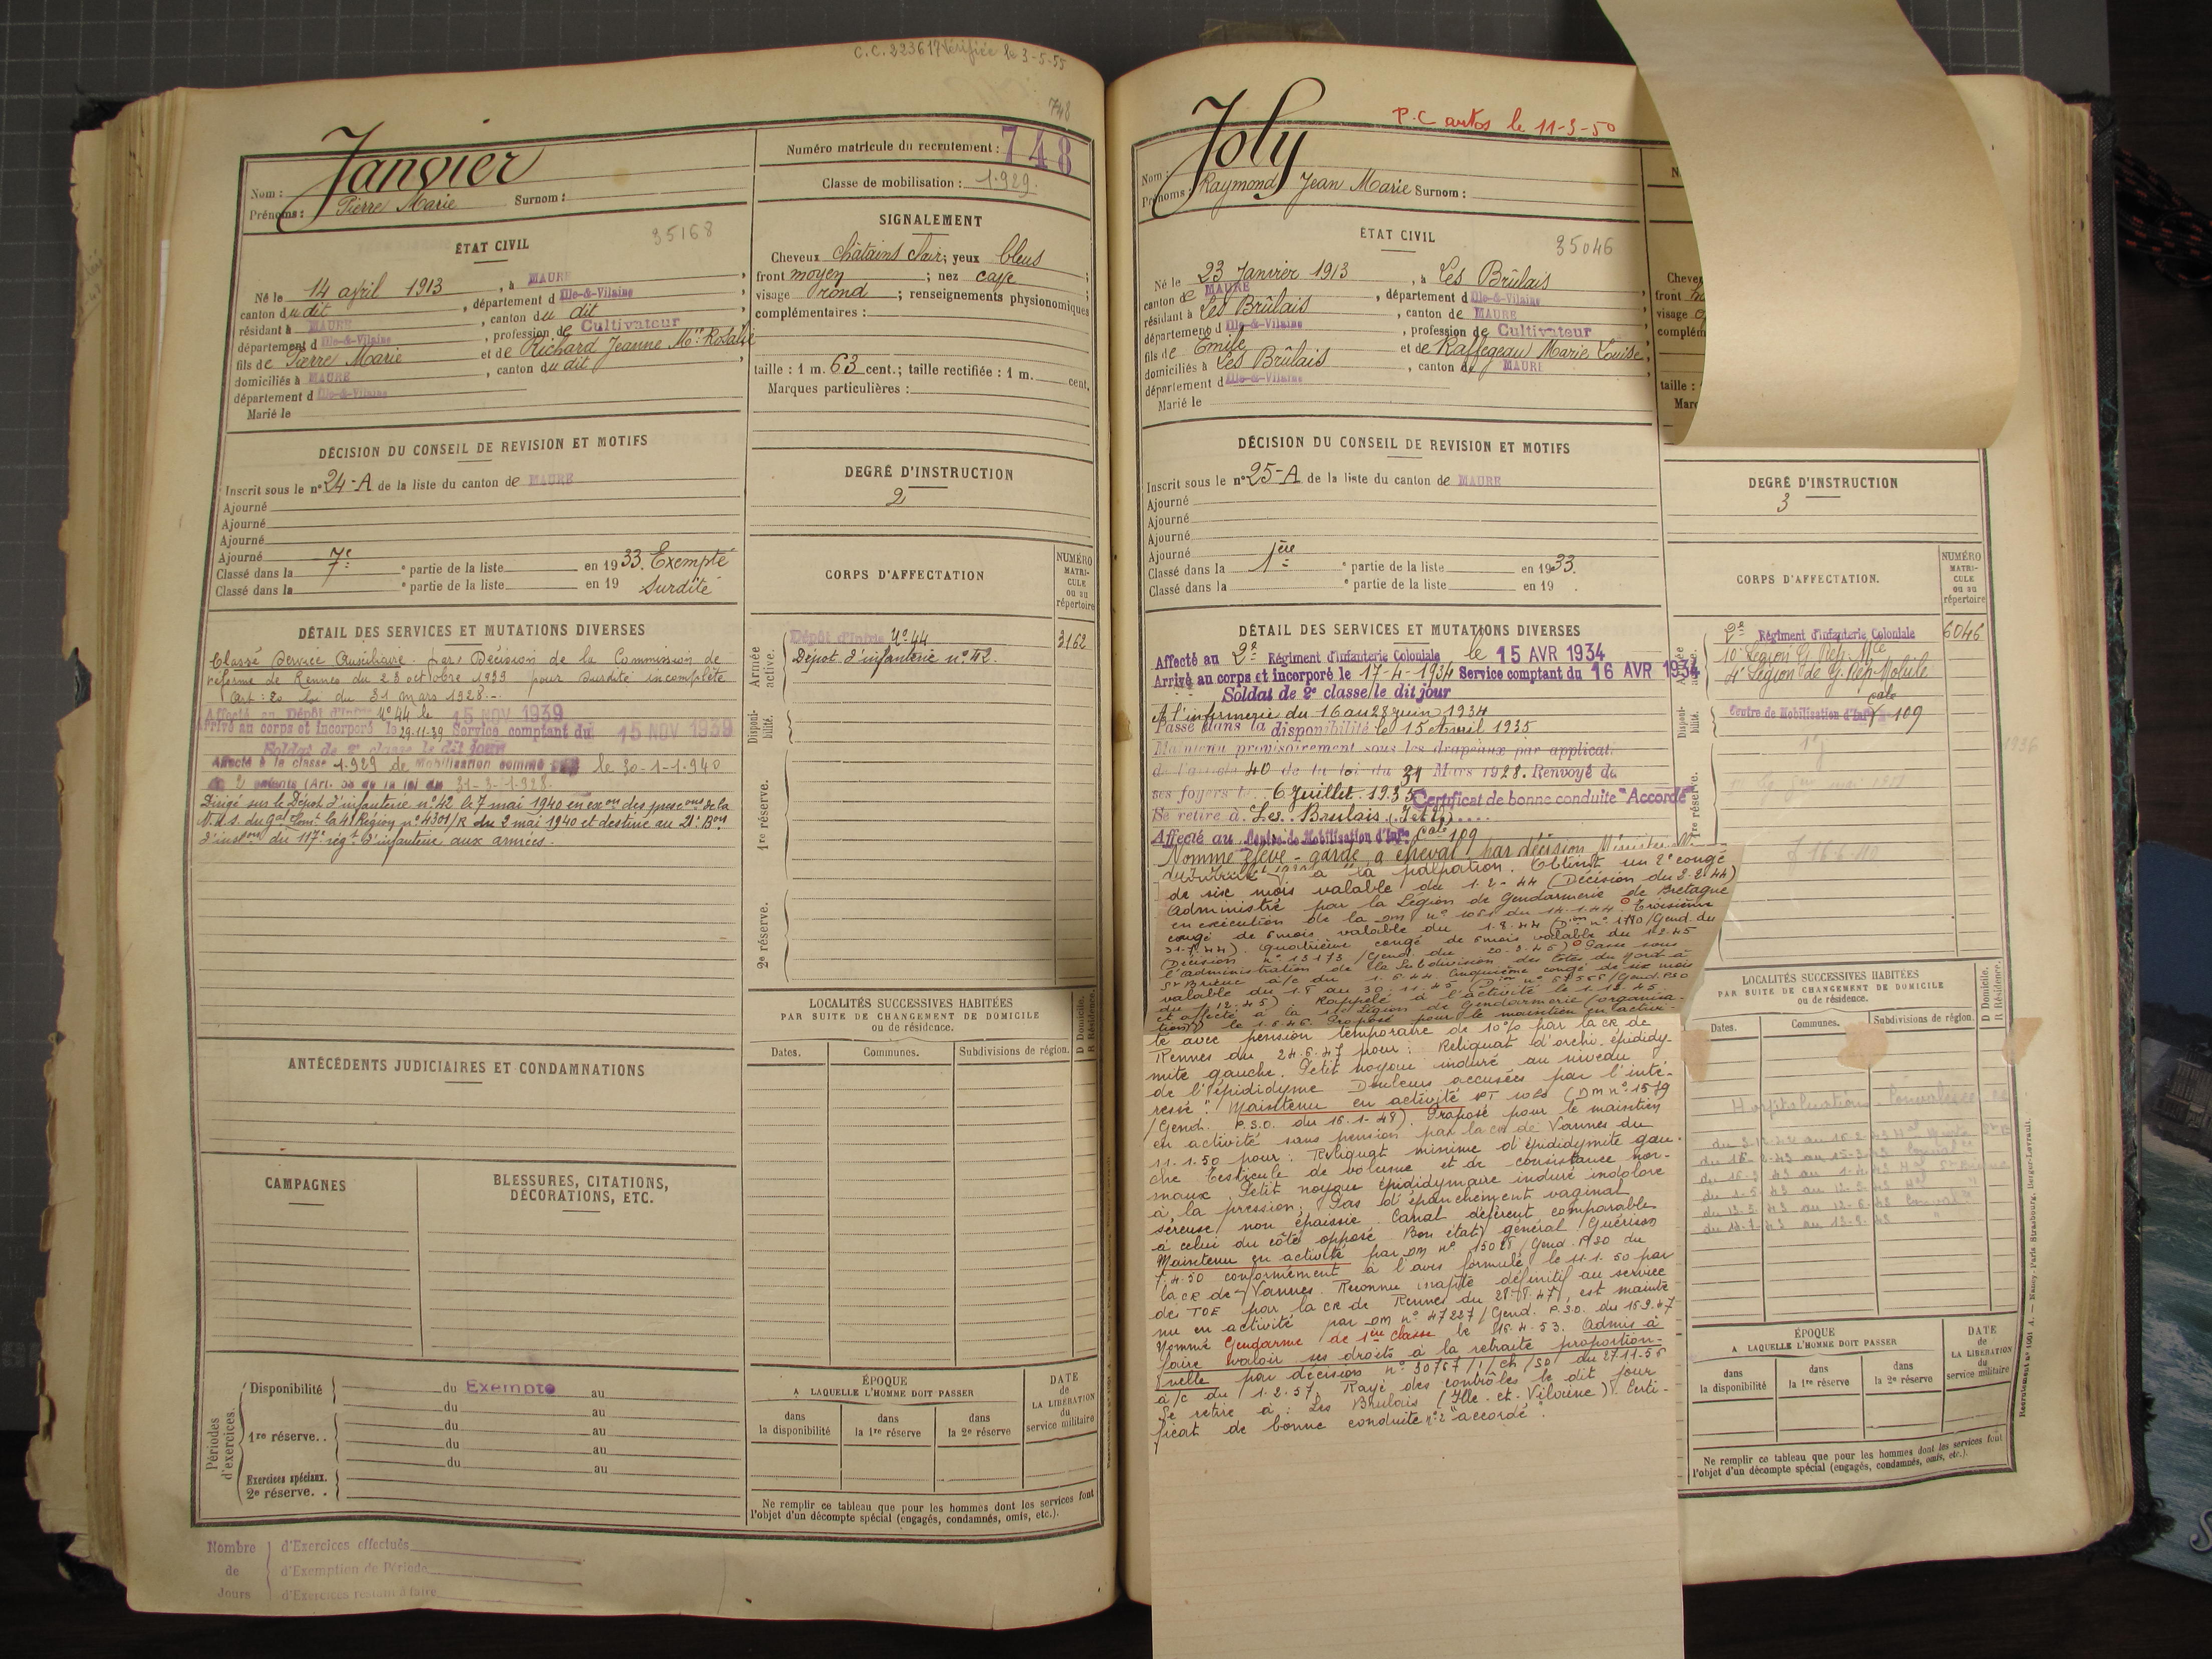 C.C. 223617 Vérifiée le 3-5-55
748
Janvier
Nom :
Prénoms : Pierre Marie Surnom :
Numéro matricule du recrutement : 748
Classe de mobilisation : 1.929.
ÉTAT CIVIL
35168
Né le 14 avril 1913, à MAURE
canton du dit, département d Ille-&-Vilaine
résidant à MAURE, canton du dit
département d Ille-&-Vilaine, profession de Cultivateur
fils de Pierre Marie et de Richard Jeanne Mie Rosalie
domiciliés à MAURE, canton du dit
département d Ille-&-Vilaine
Marié le
SIGNALEMENT
Cheveux châtains clair; yeux bleus
front moyen; nez
visage rond; renseignements physionomiques
complémentaires :
taille : 1 m. 63 cent.; taille rectifiée : 1 m. cent.
Marques particulières :
DÉCISION DU CONSEIL DE REVISION ET MOTIFS
Inscrit sous le n° 24-A de la liste du canton de MAURE
Ajourné
Ajourné
Ajourné
Ajourné
Classé dans la 7e partie de la liste en 1933. Exempté
Classé dans la e partie de la liste en 19 Surdité
DEGRÉ D'INSTRUCTION
2
CORPS D'AFFECTATION
NUMÉRO MATRICULE ou au répertoire
DÉTAIL DES SERVICES ET MUTATIONS DIVERSES
Classé Service Auxiliaire par Décision de la Commission de
réforme de Rennes du 23 octobre 1939 pour surdité incomplète
Art : 20 loi du 31 mars 1928.-
Affecté au Dépôt d'Infrie N° 44 le 15 NOV 1939
Arrivé au corps et incorporé le 29-11-39 Service comptant du 15 NOV 1939
Soldat de 2e classe le dit jour
Affecté à la classe 1.929 de Mobilisation comme le 30-1-1.940
2 enfants (Art. 58 de la loi du 31-3-1.928
Dirigé sur le Dépôt d'infanterie n° 42 le 7 mai 1940 en exon des presons de la
N.d.s. du Gal Comt la 4e Région n° 4301/R du 2 mai 1940 et destiné au 21e Bon
d'inston du 117e régt d'infanterie aux armées.
Armée active.
Dépôt d'Infrie N° 44
3162
Dépôt d'infanterie n° 42.
Disponibilité.
1re réserve.
2e réserve.
ANTÉCÉDENTS JUDICIAIRES ET CONDAMNATIONS
CAMPAGNES
BLESSURES, CITATIONS, DÉCORATIONS, ETC.
LOCALITÉS SUCCESSIVES HABITÉES
PAR SUITE DE CHANGEMENT DE DOMICILE
ou de résidence.
D Domicile.
R Résidence.
Dates. Communes. Subdivisions de région.
Périodes d'exercices.
Disponibilité du Exempté au
du au
1re réserve.. du au
du au
du au
Exercices spéciaux.
2e réserve. .
ÉPOQUE
A LAQUELLE L'HOMME DOIT PASSER
dans la disponibilité
dans la 1re réserve
dans la 2e réserve
DATE de LA LIBÉRATION du service militaire
Ne remplir ce tableau que pour les hommes dont les services font
l'objet d'un décompte spécial (engagés, condamnés, omis, etc.).
Nombre de Jours
d'Exercices effectués
d'Exemption de Période
d'Exercices restant à faire
Joly
P.C autos le 11-3-50
Nom :
Prénoms : Raymond Jean Marie Surnom :
ÉTAT CIVIL
35046
Né le 23 Janvier 1913, à Les Brûlais
canton de MAURE, département d Ille-&-Vilaine
résidant à Les Brûlais, canton de MAURE
département d Ille-&-Vilaine, profession de Cultivateur
fils de Emile et de Raffegeau Marie Louise
domiciliés à Les Brûlais, canton de MAURE
département d Ille-&-Vilaine
Marié le
DÉCISION DU CONSEIL DE REVISION ET MOTIFS
Inscrit sous le n° 25-A de la liste du canton de MAURE
Ajourné
Ajourné
Ajourné
Ajourné
Classé dans la 1ère partie de la liste en 1933.
Classé dans la e partie de la liste en 19 .
DEGRÉ D'INSTRUCTION
3
CORPS D'AFFECTATION.
NUMÉRO MATRICULE ou au répertoire
DÉTAIL DES SERVICES ET MUTATIONS DIVERSES
Affecté au 2e Régiment d'Infanterie Coloniale le 15 AVR 1934
Arrivé au corps et incorporé le 17-4-1934 Service comptant du 16 AVR 1934
Soldat de 2e classe le dit jour
A l'infirmerie du 16 au 28 juin 1934
Passé dans la disponibilité le 15 Avril 1935
Maintenu provisoirement sous les drapeaux par applicat.
de l'article 40 de la loi du 31 Mars 1928. Renvoyé de
ses foyers le 6 Juillet 1935 Certificat de bonne conduite "Accordé"
Se retire à Les Brulais (I et V)....
Affecté au Centre de Mobilisation d'Infie Cale 109
Nommé élève-garde à cheval par décision
à la palpation. Obtient un 2e congé
de six mois valable du 1.2-44 (Décision du 2.2.44)
Administré par la Légion de Gendarmerie de Bretagne
en exécution de la DM n° 1081 du 14.1.44. Troisième
congé de 6 mois valable du 1.8.44 (Don n° 1780/Gend. du
31.7.44). Quatrième congé de 6 mois valable du 1.2.45
(Décision n° 13173 /Gend. du 20-3-45) Passe sous
l'administration de la Subdivision des Côtes du Nord à
St Brieuc à/c du 1.6.44. Cinquième congé de six mois
valable du 1.8 au 30.11.45
du 12.45) Rappelé à l'activité le 1.12.45.
et affecté à la 10e Légion de Gendarmerie (organisa-
tion) le 1.6.46. Proposé pour le maintien en activi-
té avec pension temporaire de 10% par la CR de
Rennes du 24.6.47 pour : Reliquat d'orchi-épididy-
mite gauche. Petit noyau induré au niveau
de l'épididyme. Douleurs accusées par l'inté-
ressé." Maintenu en activité PT 10% (DM n° 1579
/Gend. P.S.O. du 16.1-48). Proposé pour le maintien
en activité sans pension par la CR de Vannes du
11.1.50 pour : Reliquat minime d'épididymite gau-
che. Testicule de volume et de consistance nor-
maux. Petit noyau épididymaire induré indolore
à la pression. Pas d'épanchement vaginal
séreuse non épaissie. Canal déférent comparable
à celui du côté opposé. Bon état général Guérison
Maintenu en activité par DM n° 15028/Gend. PSO du
7.4.50 conformément à l'avis formulé le 11.1.50 par
la CR de Vannes. Reconnu inapte définitif au service
des TOE par la CR de Rennes du 28.8.47, est mainte
nu en activité par DM n° 47227/Gend. P.S.O. du 15.9.47
Nommé Gendarme de 1ère classe le 16.4.53. Admis à
faire valoir ses droits à la retraite proportion-
nelle par décision n° 30767/1/ch/SO/ du 27.11.56
à/c du 1.2.57. Rayé des contrôles le dit jour
Se retire à : Les Brulais (Ille-et-Vilaine). Certi-
ficat de bonne conduite n° 2 "accordé".
2e Régiment d'Infanterie Coloniale 6046
10e Légion G. Rép. Mle
4e Légion de G. Rép Mobile
Centre de Mobilisation d'Infie Cale 109
1936
1re réserve.
LOCALITÉS SUCCESSIVES HABITÉES
PAR SUITE DE CHANGEMENT DE DOMICILE
ou de résidence.
D Domicile.
R Résidence.
Dates. Communes. Subdivisions de région.
Hospitalisations - Convalescence
ÉPOQUE
A LAQUELLE L'HOMME DOIT PASSER
dans la disponibilité
dans la 1re réserve
dans la 2e réserve
DATE de LA LIBÉRATION du service militaire
Ne remplir ce tableau que pour les hommes dont les services font
l'objet d'un décompte spécial (engagés, condamnés, omis, etc.).